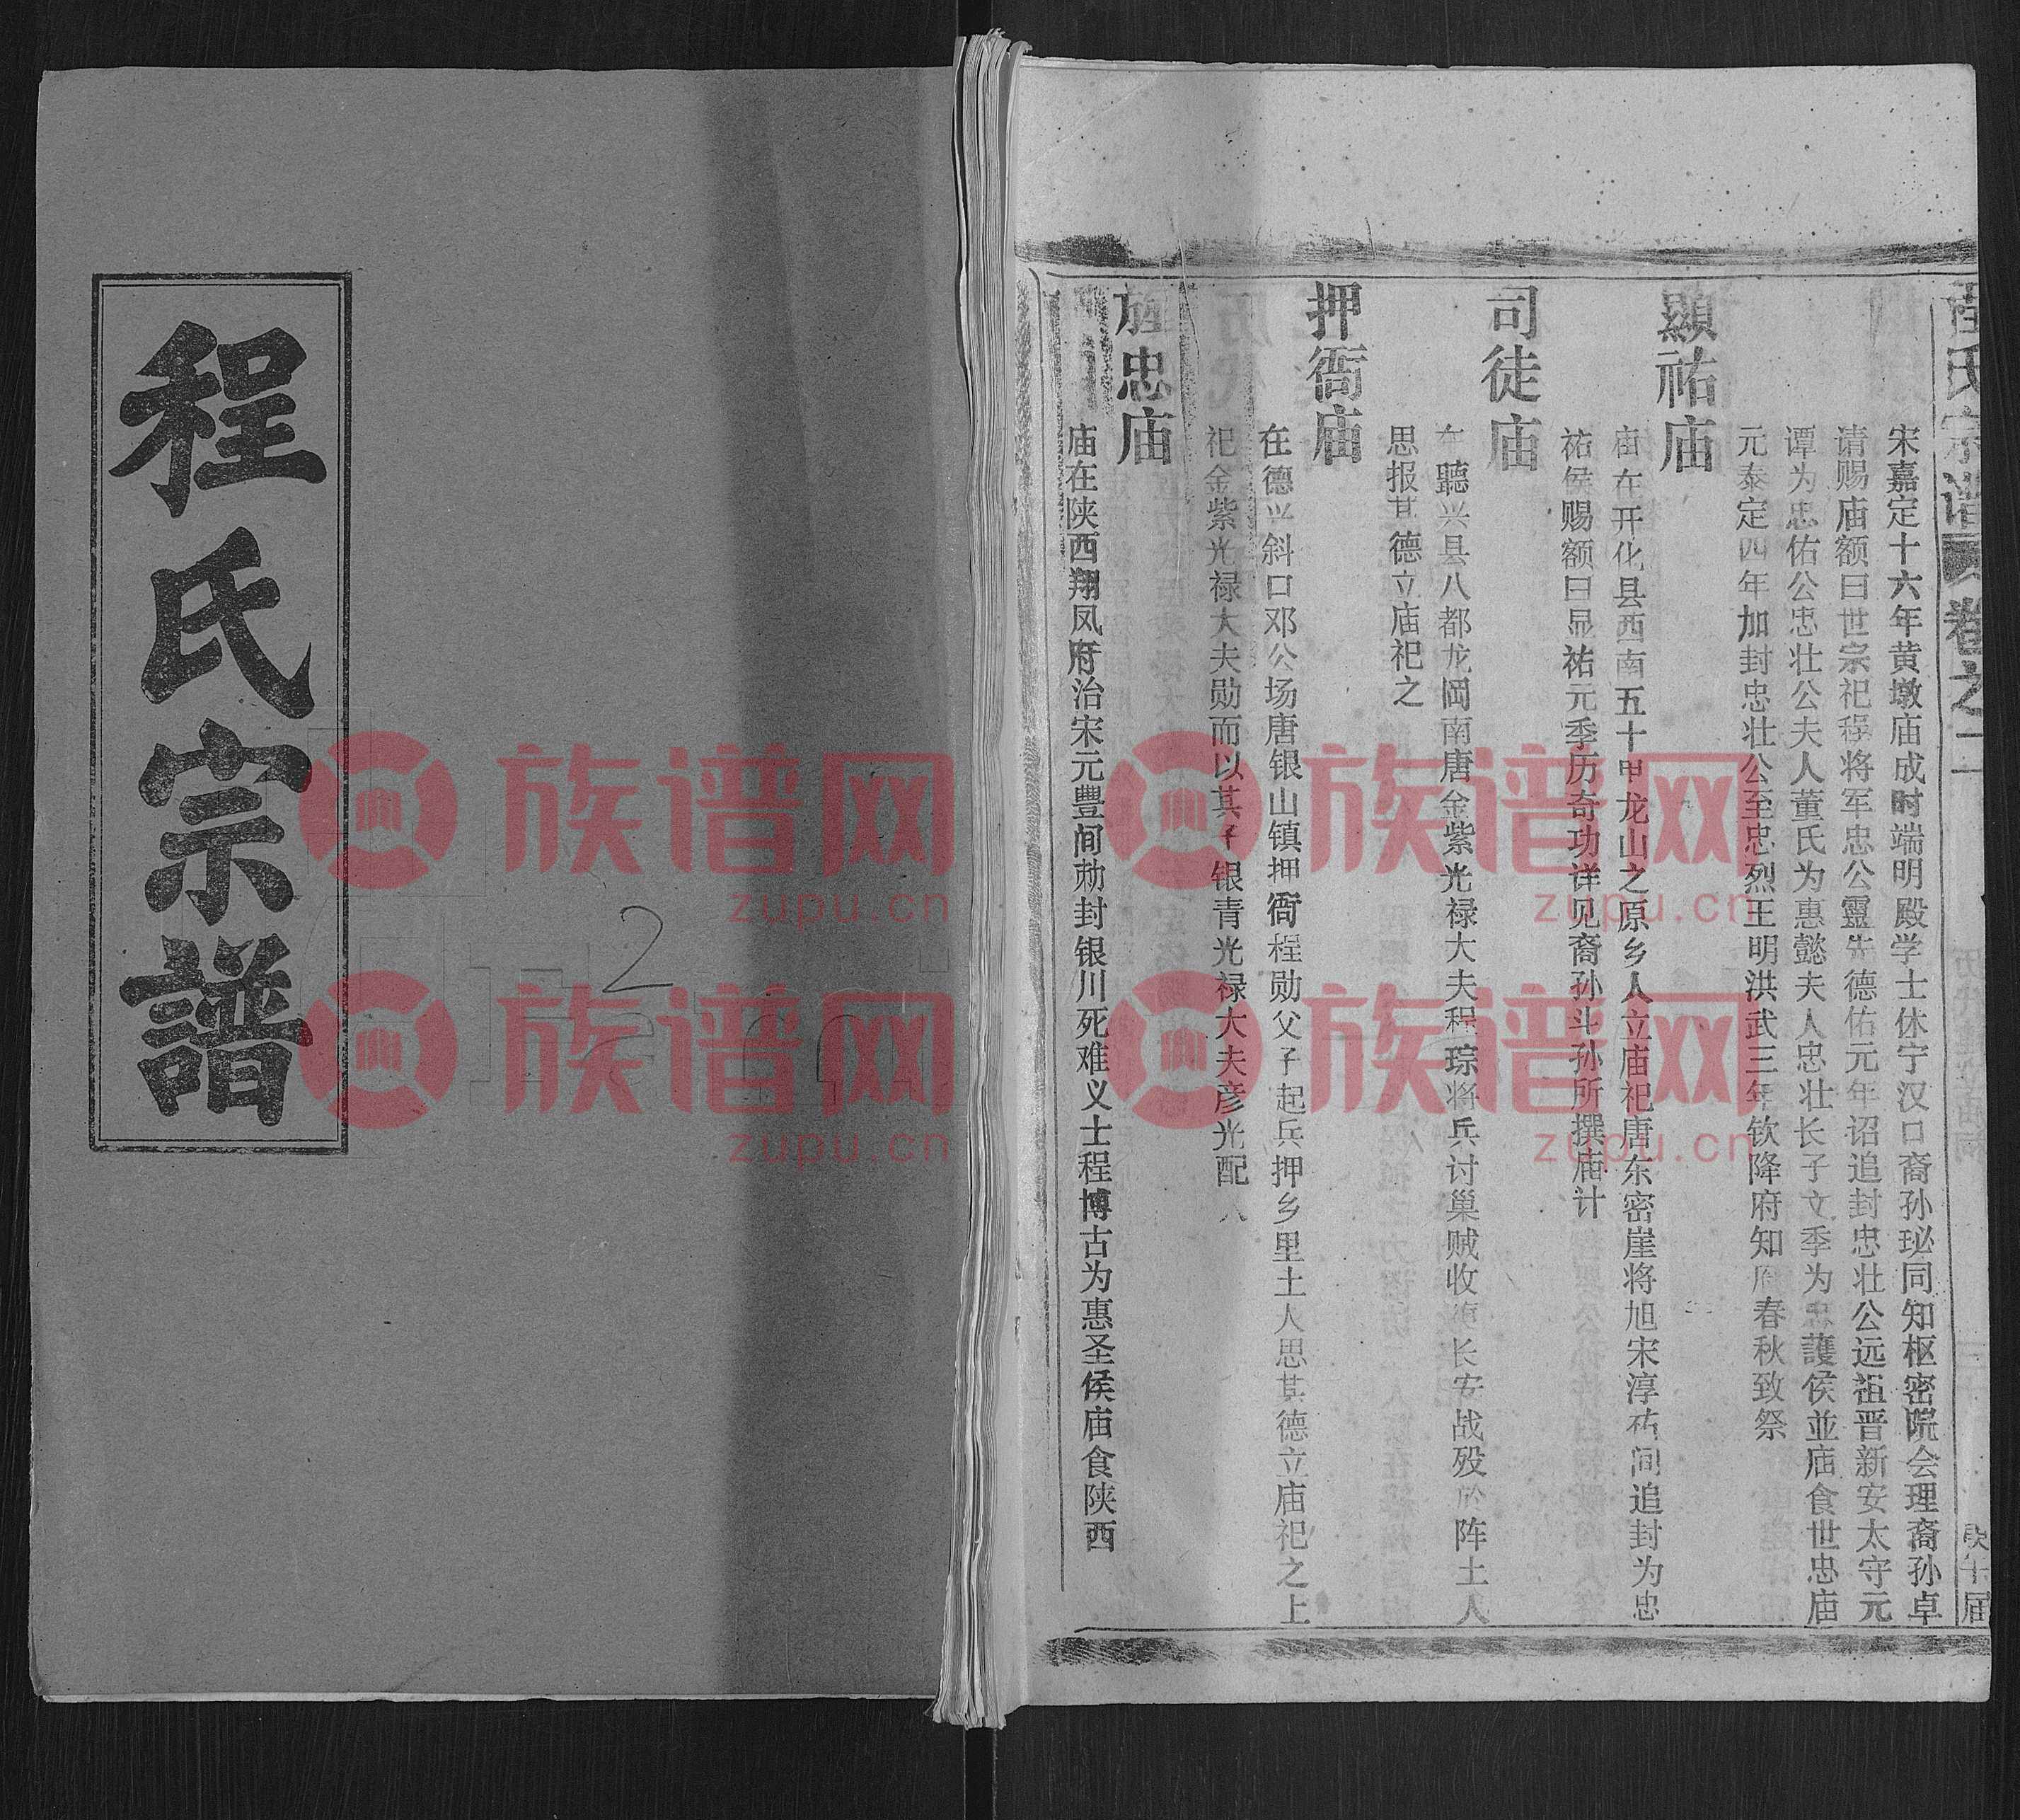 程氏宗谱 卷之二
宋嘉定十六年黄墩庙成时端明殿学士休宁汉口裔孙珌同知枢密院会理裔孙卓
请赐庙额曰世宗祀程将军忠公靈先德佑元年诏追封忠壮公远祖晋新安太守元
谭为忠佑公忠壮公夫人董氏为惠懿夫人忠壮长子文季为忠護侯並庙食世忠庙
元泰定四年加封忠壮公至忠烈王明洪武三年钦降府知府春秋致祭
顯祐庙
庙在开化县西南五十里龙山之原乡人立庙祀唐东密崖将旭宋淳祐间追封为忠
祐侯赐额曰显祐元季历奇功详见裔孙斗孙所撰庙计
司徒庙
在聽兴县八都龙岡南唐金紫光禄大夫程琮将兵讨巢贼收復长安战殁於阵土人
思报其德立庙祀之
押衙庙
在德兴斜口邓公场唐银山镇押衙程勋父子起兵押乡里土人思其德立庙祀之上
祀金紫光禄大夫勋而以其子银青光禄大夫彦光配
旌忠庙
庙在陕西翔凤府治宋元豐间勅封银川死难义士程博古为惠圣侯庙食陕西
程氏宗譜
2
族谱网
zupu.cn
族谱网
zupu.cn
族谱网
zupu.cn
族谱网
zupu.cn